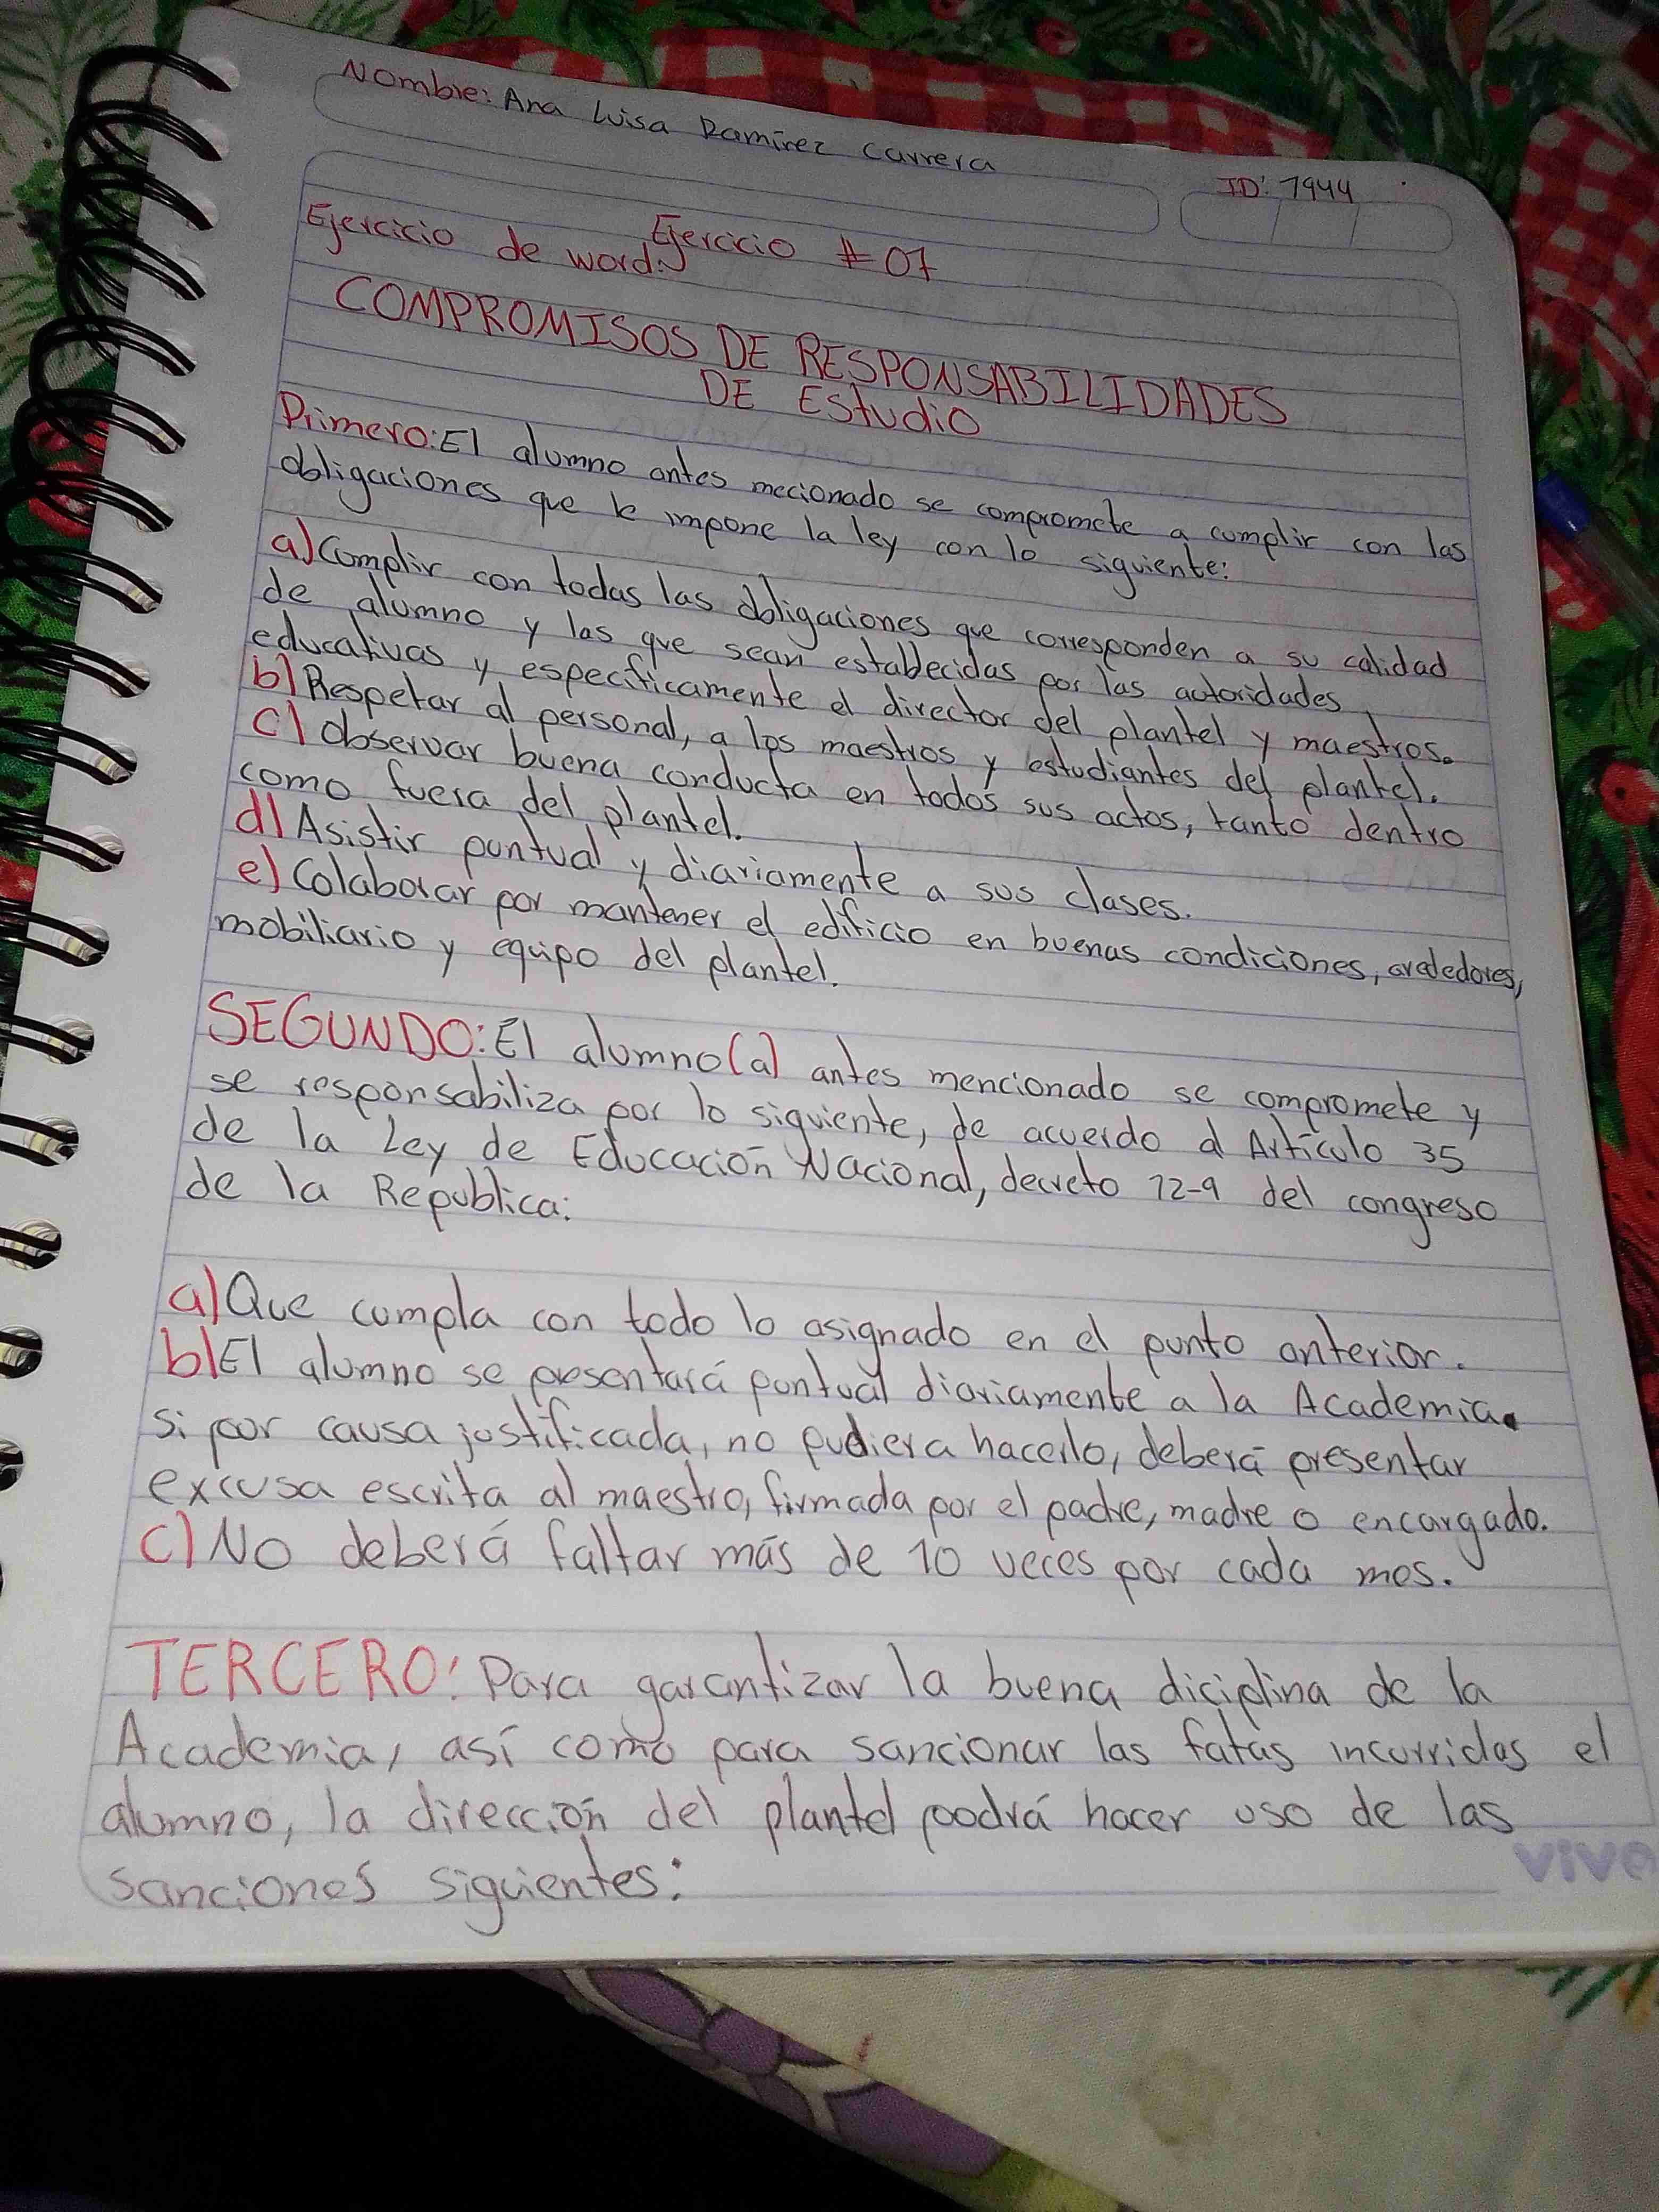 Nombre: Ana Luisa Ramírez Carrera
ID: 7944
Ejercicio de word: Ejercicio #07
COMPROMISOS DE RESPONSABILIDADES
DE EstudiO
Primero: El alumno antes mecionado se compromete a cumplir con las
obligaciones que le impone la ley con lo siguiente:
a) Cumplir con todas las obligaciones que corresponden a su calidad
de alumno y las que sean establecidas por las autoridades
educativas y específicamente el director del plantel y maestros.
b) Respetar al personal, a los maestros y estudiantes del plantel.
c) Observar buena conducta en todos sus actos, tanto dentro
como fuera del plantel.
d) Asistir puntual y diariamente a sus clases.
e) Colaborar por mantener el edificio en buenas condiciones, arededores,
mobiliario y equipo del plantel.
SEGUNDO: El alumno(a) antes mencionado se compromete y
se responsabiliza por lo siguiente, de acuerdo al Artículo 35
de la Ley de Educación Nacional, decreto 12-9 del congreso
de la Republica:
a) Que cumpla con todo lo asignado en el punto anterior.
b) El alumno se presentará puntual diariamente a la Academia.
Si por causa justificada, no pudiera hacerlo, deberá presentar
excusa escrita al maestro, firmada por el padre, madre o encargado.
c) No deberá faltar más de 10 veces por cada mes.
TERCERO: Para garantizar la buena diciplina de la
Academia, así como para sancionar las fatas incurridas el
alumno, la dirección del plantel poodrá hacer uso de las
sanciones siguientes:
vivo